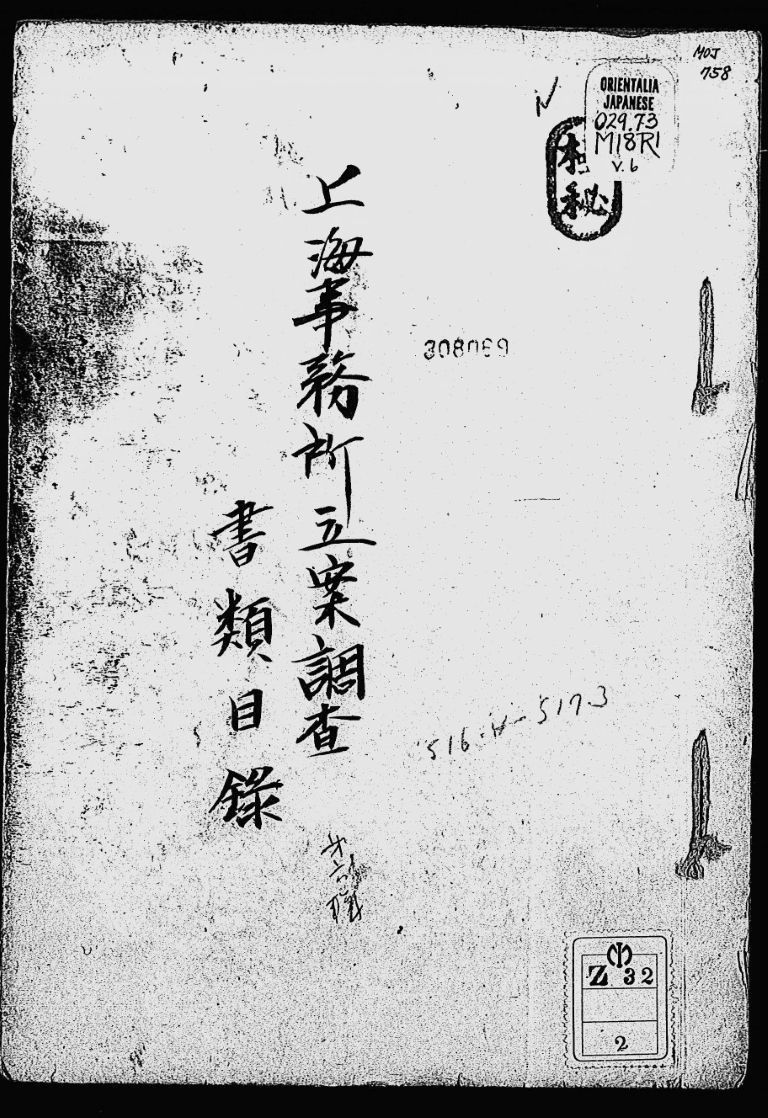 MOJ
758
ORIENTALIA
JAPANESE
029.73
M18RI
V. 6
秘
上海事務所立案調査
書類目録
308069
Z 32
2